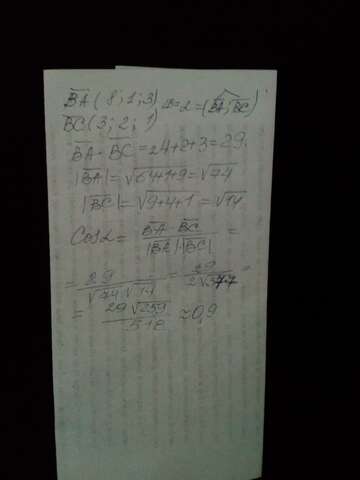 B̅A̅ (8; 1; 3) ∠B = α = (B̅A̅; B̅C̅)
B̅C̅ (3; 2; 1)
B̅A̅ · B̅C̅ = 24+2+3=29.
|B̅A̅| = √64+1+9 = √74
|B̅C̅| = √9+4+1 = √14
Cos α = B̅A̅ · B̅C̅ / |B̅A̅|·|B̅C̅| =
= 29 / √74 √14 = 29 / =
= 29√259 / 518 ≈ 0,9